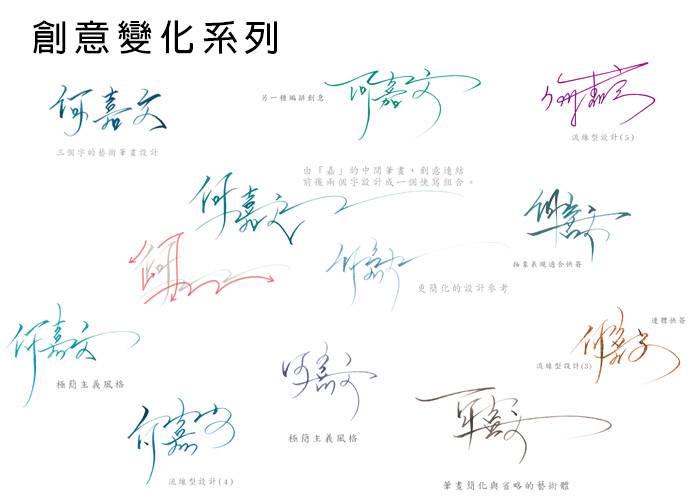 創意變化系列
何嘉文
三個字的藝術筆畫設計
另一種編排創意
何嘉文
何嘉文
流線型設計(5)
由「嘉」的中間筆畫,創意連結
前後兩個字設計成一個快寫組合。
何嘉文
何嘉文
抽象表現適合快簽
何
何嘉文
更簡化的設計參考
何嘉文
極簡主義風格
何嘉文
極簡主義風格
連體快簽
何嘉文
流線型設計(3)
何嘉文
流線型設計(4)
何嘉文
筆畫簡化與省略的藝術體